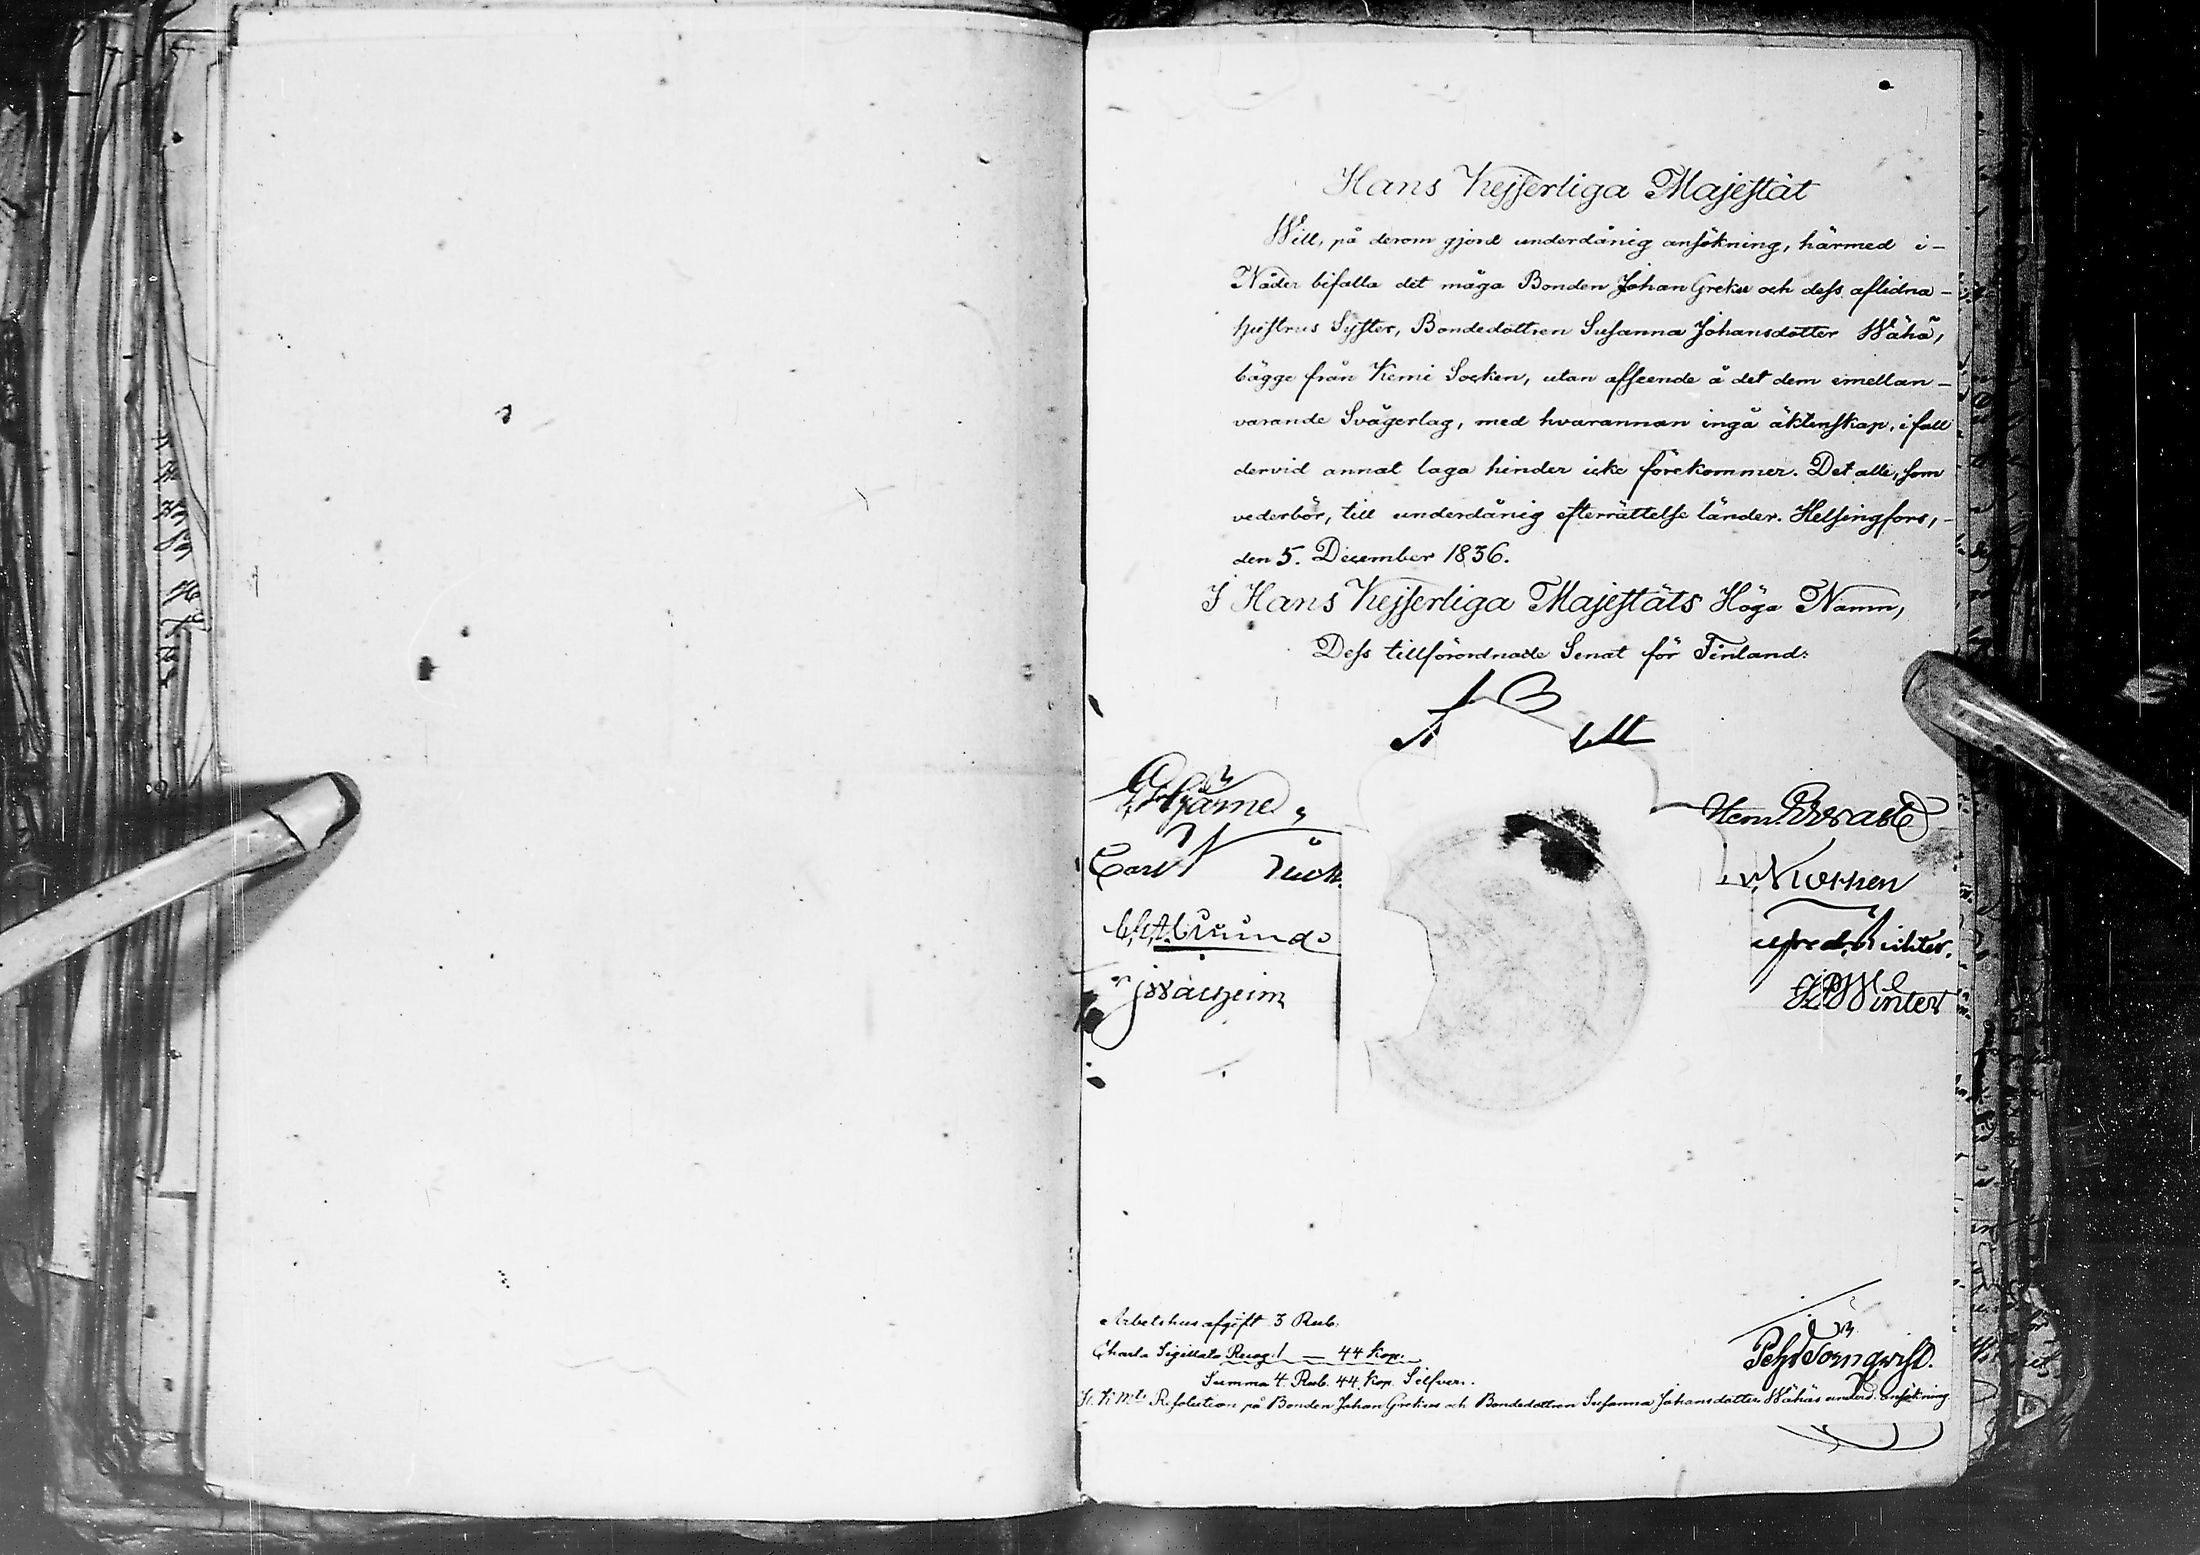 Hans Kejserliga Majestät
Will, på derom gjord underdånig ansökning, härmed i
Nåder bifalla det måga Bonden Johan Greku och dess aflidna
hustrus Syster, Bondedottren Susanna Johansdotter Wähä,
bägge från Kemi Socken, utan afseende å det dem emellan
varande Svågerlag, med hvarannan ingå äktenskap, i fall
dervid annat laga hinder icke förekommer. Det alle, som
vederbör, till underdånig efterrättelse länder. Helsingfors,
den 5. December 1836.
I Hans Kejserliga Majestäts Höga Namn,
Dess tillförordnade Senat för Finland:
Hjärne
Carl
Walheim
Richter.
Winter
Arbetshusafgift 3 Rub.
Charta Sigillata Recog. 1 — 44 Kop.
Summa 4. Rub. 44. Kop. Silfver.
Pehr Törnqvist.
Resolution på Bonden Johan Grekus och Bondedottren Susanna Johansdotter Wähäs underd. ansökning